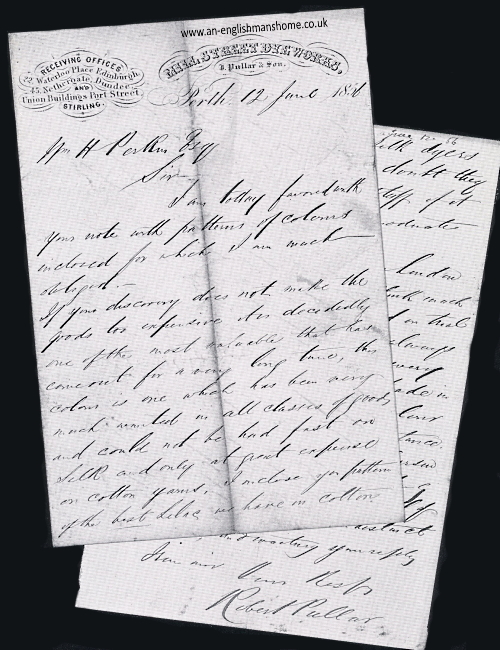 www.an-englishmanshome.co.uk
RECEIVING OFFICES
22, Waterloo Place Edinburgh,
45, Nethergate, Dundee
AND
Union Buildings Port Street
STIRLING.
MILL STREET DYEWORKS,
R. Pullar & Son.
Perth 12 June 1856
Wm H Perkin Esqr
Sir
I am today favored with
your note with patterns of colours
inclosed for which I am much
obliged.
If your discovery does not make the
goods too expensive it is decidedly
one of the most valuable that has
come out for a very long time, this
colour is one which has been very
much wanted in all classes of goods
and could not be had fast on
Silk and only at great expense
on cotton yarns. I inclose you pattern
of the best Lilac we have in cotton
silk dyers
doubt they
London
much
on trial
always
very
made in
person
district
and awaiting your reply
Yours Respy
Robert Pullar